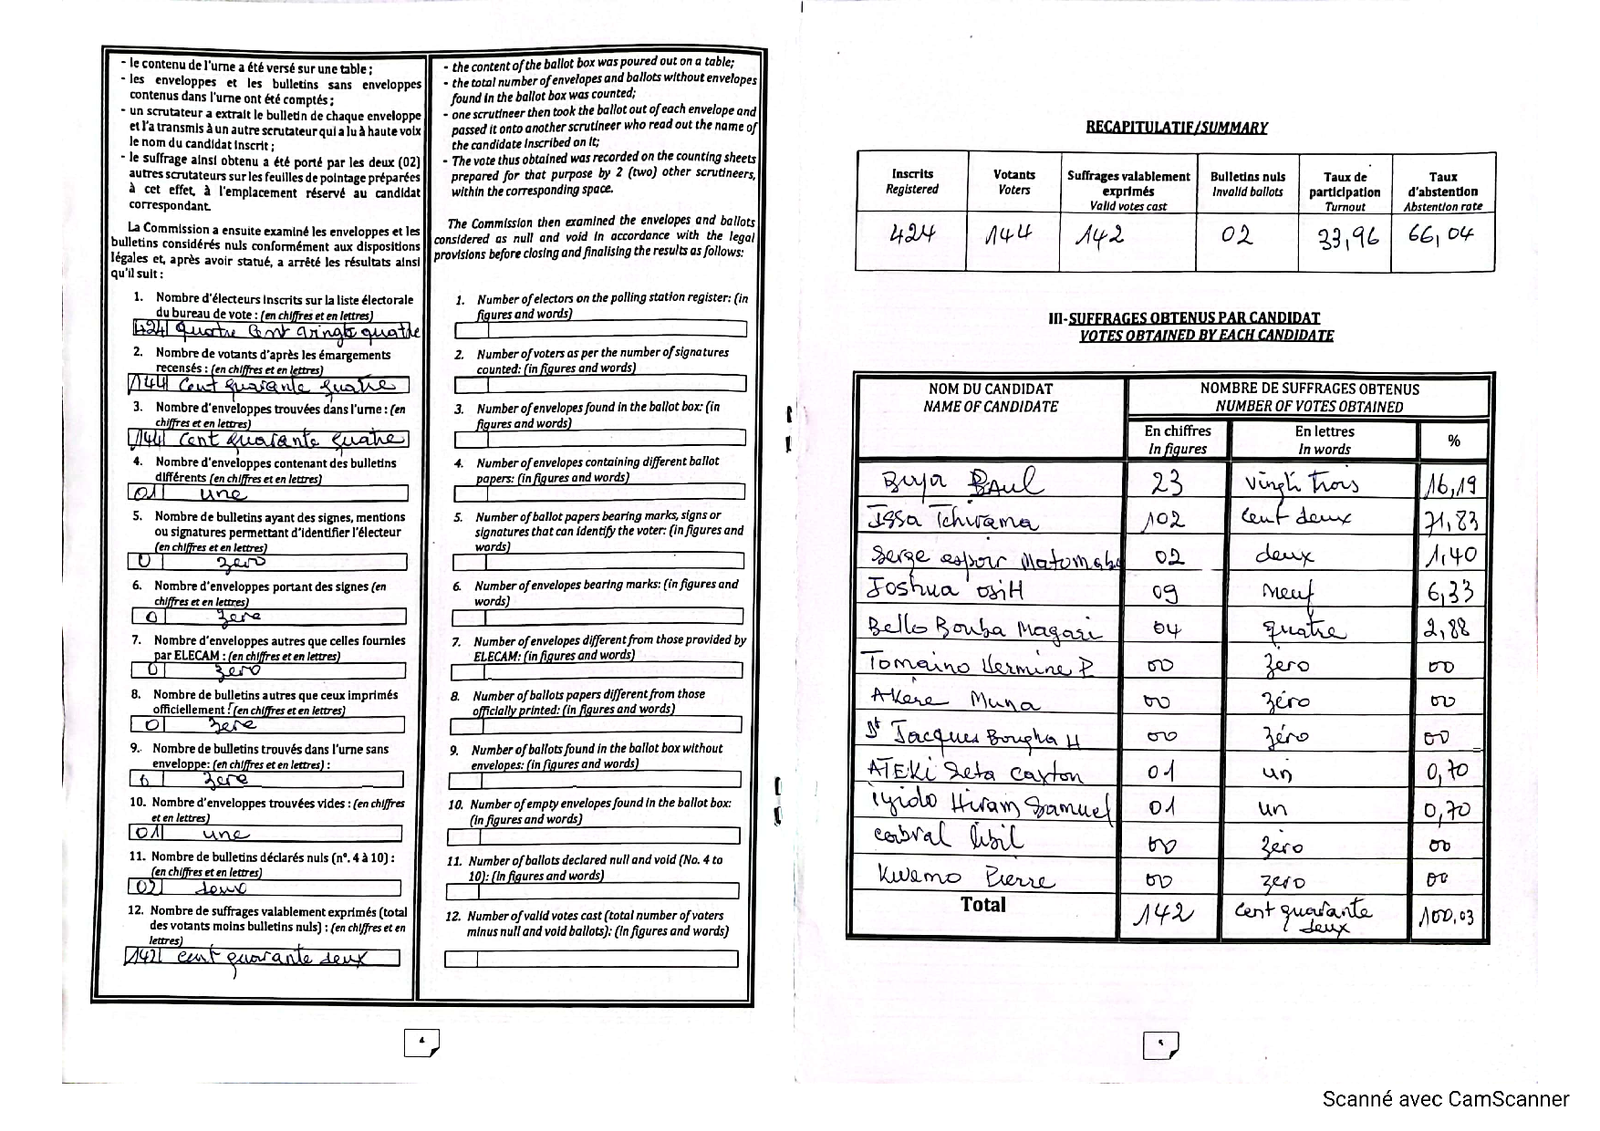 - le contenu de l'urne a été versé sur une table ;
- les enveloppes et les bulletins sans enveloppes
contenus dans l'urne ont été comptés ;
- un scrutateur a extrait le bulletin de chaque enveloppe
et l'a transmis à un autre scrutateur qui a lu à haute voix
le nom du candidat inscrit ;
- le suffrage ainsi obtenu a été porté par les deux (02)
autres scrutateurs sur les feuilles de pointage préparées
à cet effet, à l'emplacement réservé au candidat
correspondant.
La Commission a ensuite examiné les enveloppes et les
bulletins considérés nuls conformément aux dispositions
légales et, après avoir statué, a arrêté les résultats ainsi
qu'il suit :
1. Nombre d'électeurs inscrits sur la liste électorale
du bureau de vote : (en chiffres et en lettres)
424 quatre cent vingt quatre
2. Nombre de votants d'après les émargements
recensés : (en chiffres et en lettres)
144 cent quarante quatre
3. Nombre d'enveloppes trouvées dans l'urne : (en
chiffres et en lettres)
144 cent quarante quatre
4. Nombre d'enveloppes contenant des bulletins
différents (en chiffres et en lettres)
01 une
5. Nombre de bulletins ayant des signes, mentions
ou signatures permettant d'identifier l'électeur
(en chiffres et en lettres)
0 zero
6. Nombre d'enveloppes portant des signes (en
chiffres et en lettres)
0 zero
7. Nombre d'enveloppes autres que celles fournies
par ELECAM : (en chiffres et en lettres)
0 zero
8. Nombre de bulletins autres que ceux imprimés
officiellement : (en chiffres et en lettres)
0 zero
9. Nombre de bulletins trouvés dans l'urne sans
enveloppe: (en chiffres et en lettres) :
0 zero
10. Nombre d'enveloppes trouvées vides : (en chiffres
et en lettres)
01 une
11. Nombre de bulletins déclarés nuls (n°. 4 à 10) :
(en chiffres et en lettres)
02 deux
12. Nombre de suffrages valablement exprimés (total
des votants moins bulletins nuls) : (en chiffres et en
lettres)
142 cent quarante deux
- the content of the ballot box was poured out on a table;
- the total number of envelopes and ballots without envelopes
found in the ballot box was counted;
- one scrutineer then took the ballot out of each envelope and
passed it onto another scrutineer who read out the name of
the candidate inscribed on it;
- The vote thus obtained was recorded on the counting sheets
prepared for that purpose by 2 (two) other scrutineers,
within the corresponding space.
The Commission then examined the envelopes and ballots
considered as null and void in accordance with the legal
provisions before closing and finalising the results as follows:
1. Number of electors on the polling station register: (in
figures and words)
2. Number of voters as per the number of signatures
counted: (in figures and words)
3. Number of envelopes found in the ballot box: (in
figures and words)
4. Number of envelopes containing different ballot
papers: (in figures and words)
5. Number of ballot papers bearing marks, signs or
signatures that can identify the voter: (in figures and
words)
6. Number of envelopes bearing marks: (in figures and
words)
7. Number of envelopes different from those provided by
ELECAM: (in figures and words)
8. Number of ballots papers different from those
officially printed: (in figures and words)
9. Number of ballots found in the ballot box without
envelopes: (in figures and words)
10. Number of empty envelopes found in the ballot box:
(in figures and words)
11. Number of ballots declared null and void (No. 4 to
10): (in figures and words)
12. Number of valid votes cast (total number of voters
minus null and void ballots): (in figures and words)
4
RECAPITULATIF/SUMMARY
Inscrits Registered | Votants Voters | Suffrages valablement exprimés Valid votes cast | Bulletins nuls Invalid ballots | Taux de participation Turnout | Taux d'abstention Abstention rate
424 144 142 02 33,96 66,04
III-SUFFRAGES OBTENUS PAR CANDIDAT
VOTES OBTAINED BY EACH CANDIDATE
NOM DU CANDIDAT NOMBRE DE SUFFRAGES OBTENUS
NAME OF CANDIDATE NUMBER OF VOTES OBTAINED
En chiffres En lettres %
In figures In words
Biya BAul 23 vingt trois 16,19
Issa Tchirama 102 cent deux 71,83
Serge espoir Matomaba 02 deux 1,40
Joshua osiH 09 neuf 6,33
Bello Bouba Magari 04 quatre 2,88
Tomaino Hermine P. 00 zéro 00
Akere Muna 00 zéro 00
St Jacques Bougha H 00 zéro 00
ATEKI Seta Caxton 01 un 0,70
iyido Hiram Samuel 01 un 0,70
cabral libil 00 zéro 00
Kwemo Pierre 00 zero 00
Total 142 cent quarante deux 100,03
5
Scanné avec CamScanner